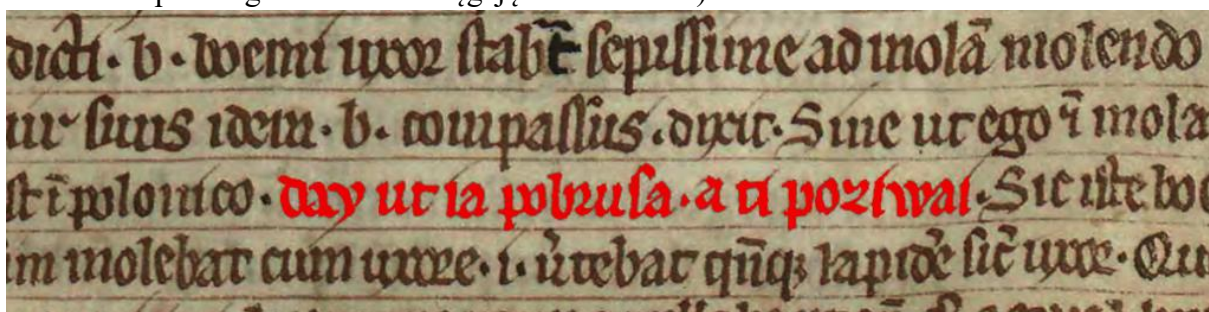 dicti · b · boemi uxor stabat sepissime ad molā molendo
uir suus idem · b · compassus · dixit · Sine ut ego q̄ mola
st ī polonico · day ut ia pobrusa · a ti poziwai · Sic iste bo
im molebat cum uxore · i · u̇tebat lapidē sic̄ uxor · Qu